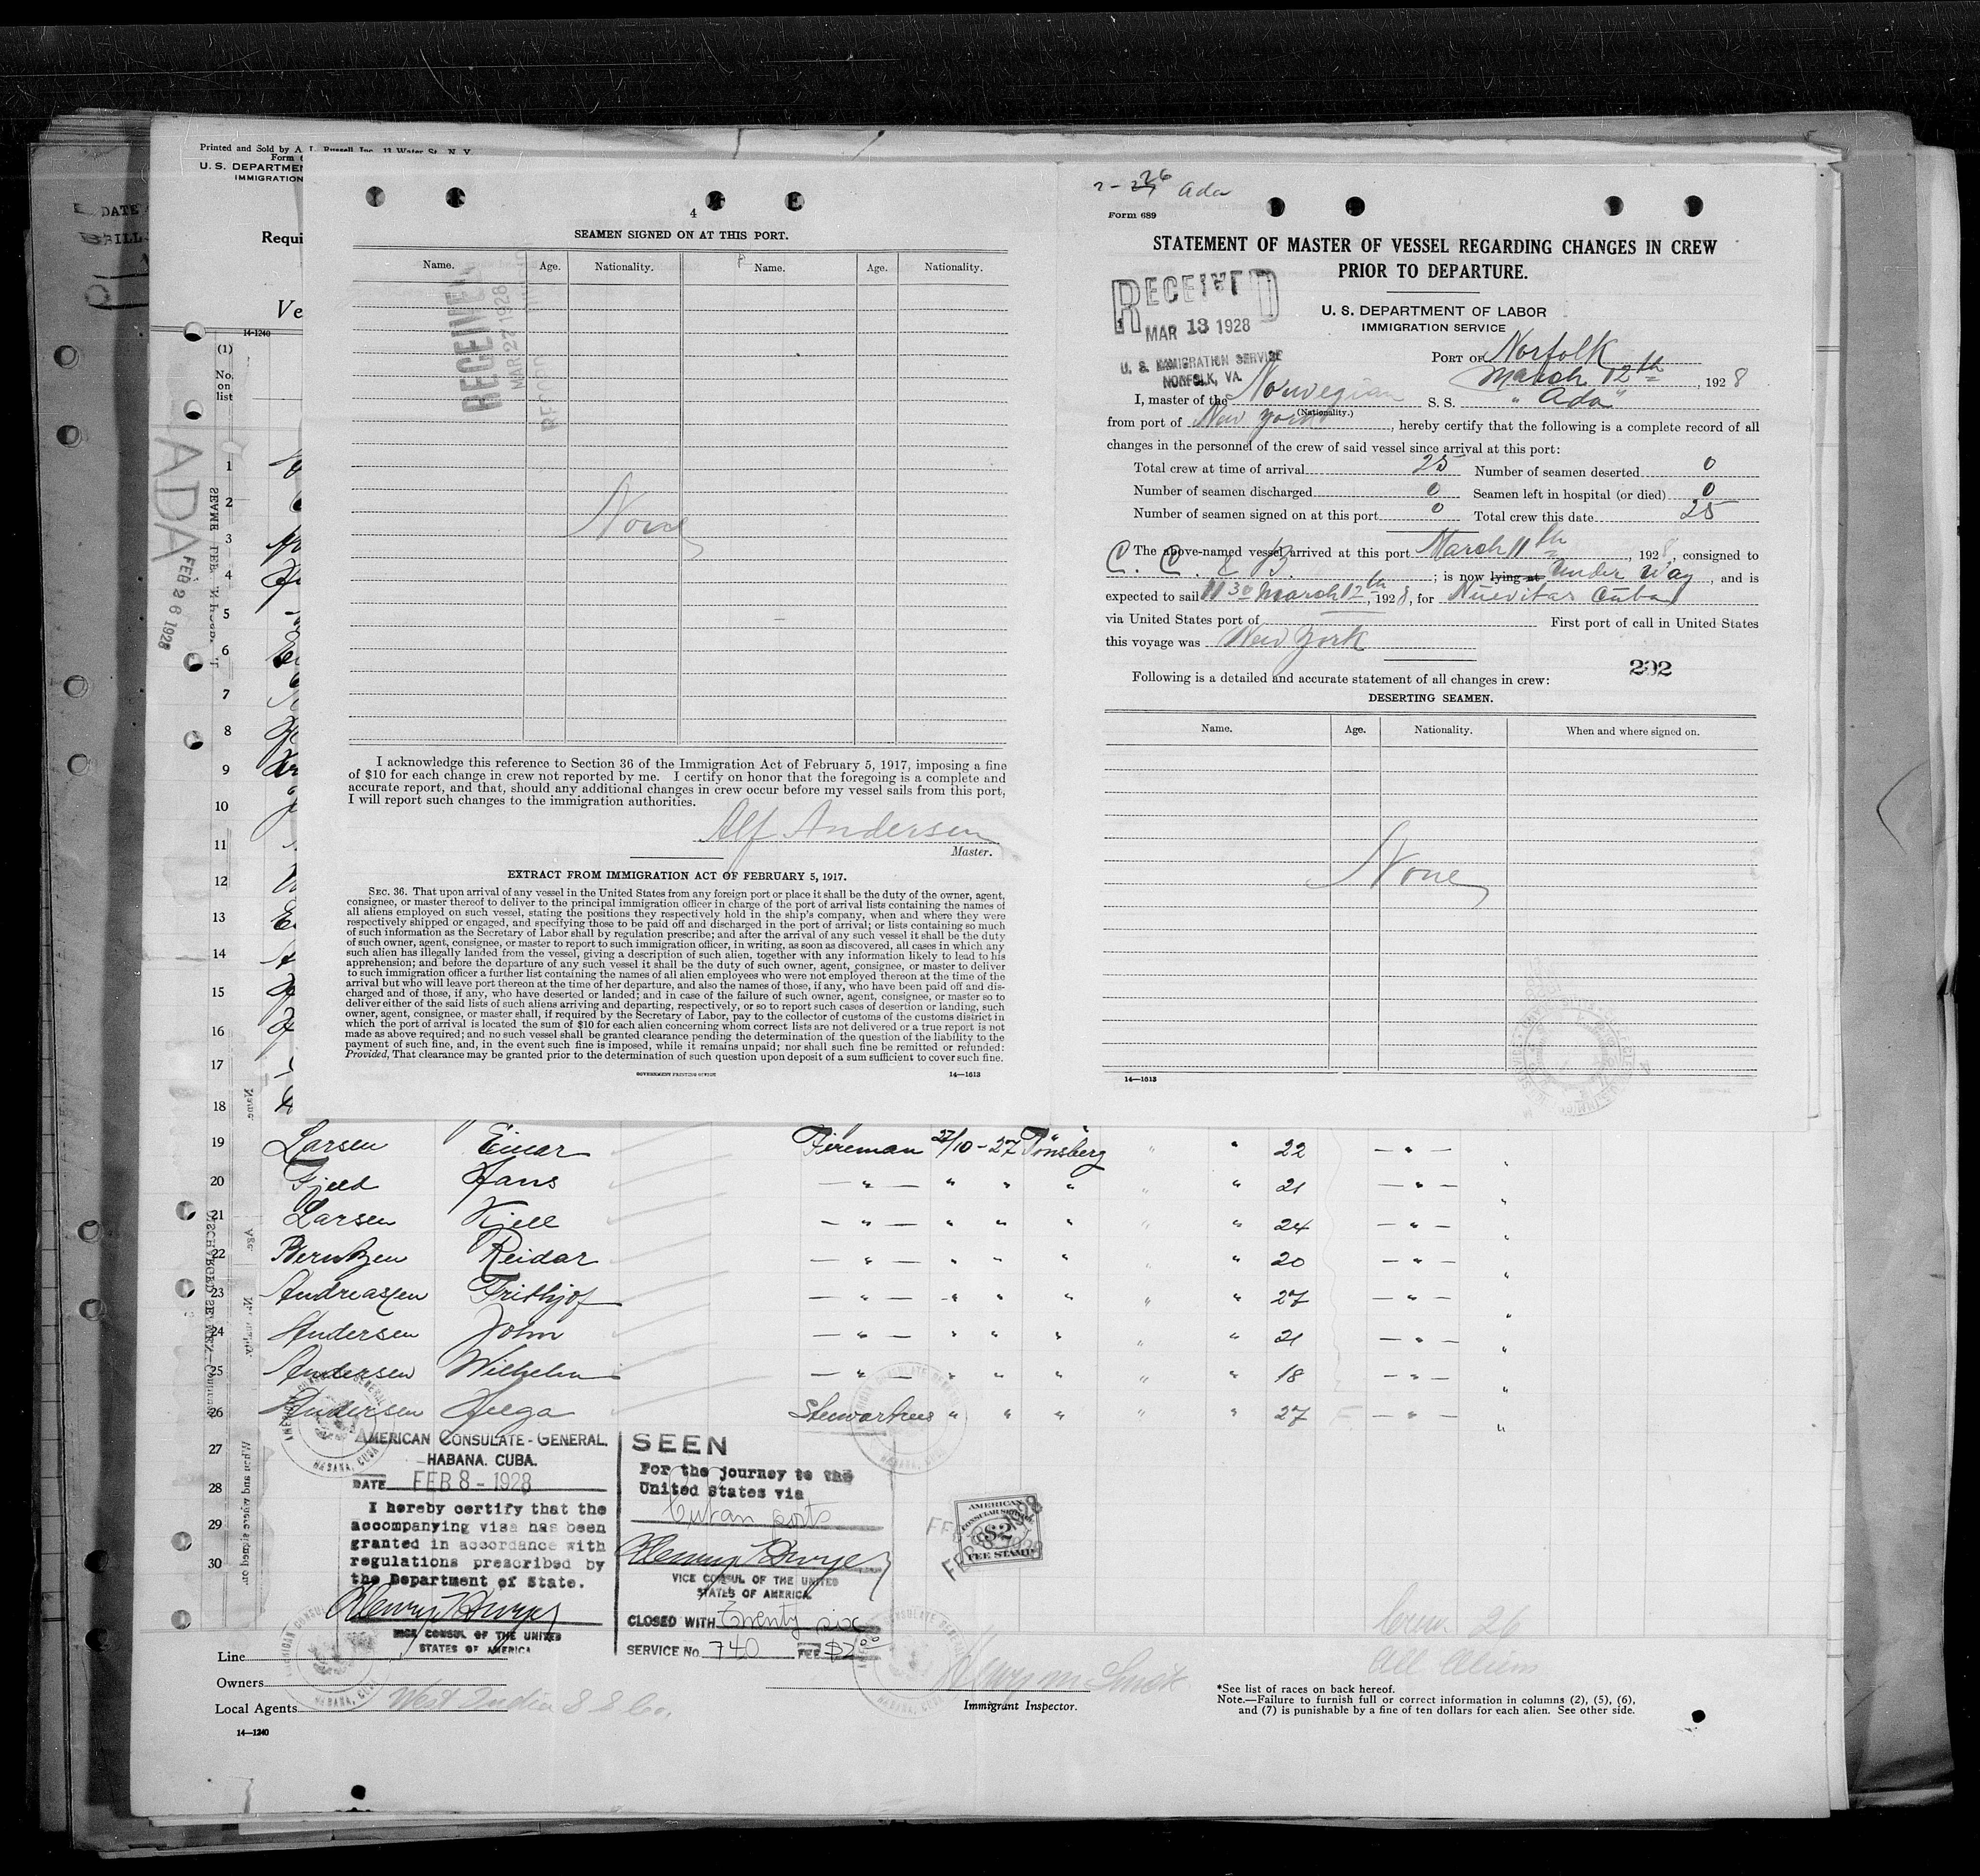 Printed and Sold by A. L. Russell Inc. 13 Water St. N. Y.
U. S. DEPARTMEN
IMMIGRATION
Requi
Ve
14-1240
(1)
No. on list
ADA
FEB 26 1928
4
SEAMEN SIGNED ON AT THIS PORT.
Name. Age. Nationality. Name. Age. Nationality.
RECEIVED
MAR 22 1928
None
I acknowledge this reference to Section 36 of the Immigration Act of February 5, 1917, imposing a fine
of $10 for each change in crew not reported by me. I certify on honor that the foregoing is a complete and
accurate report, and that, should any additional changes in crew occur before my vessel sails from this port,
I will report such changes to the immigration authorities.
Alf Andersen
Master.
EXTRACT FROM IMMIGRATION ACT OF FEBRUARY 5, 1917.
SEC. 36. That upon arrival of any vessel in the United States from any foreign port or place it shall be the duty of the owner, agent,
consignee, or master thereof to deliver to the principal immigration officer in charge of the port of arrival lists containing the names of
all aliens employed on such vessel, stating the positions they respectively hold in the ship's company, when and where they were
respectively shipped or engaged, and specifying those to be paid off and discharged in the port of arrival; or lists containing so much
of such information as the Secretary of Labor shall by regulation prescribe; and after the arrival of any such vessel it shall be the duty
of such owner, agent, consignee, or master to report to such immigration officer, in writing, as soon as discovered, all cases in which any
such alien has illegally landed from the vessel, giving a description of such alien, together with any information likely to lead to his
apprehension; and before the departure of any such vessel it shall be the duty of such owner, agent, consignee, or master to deliver
to such immigration officer a further list containing the names of all alien employees who were not employed thereon at the time of the
arrival but who will leave port thereon at the time of her departure, and also the names of those, if any, who have been paid off and dis-
charged and of those, if any, who have deserted or landed; and in case of the failure of such owner, agent, consignee, or master so to
deliver either of the said lists of such aliens arriving and departing, respectively, or so to report such cases of desertion or landing, such
owner, agent, consignee, or master shall, if required by the Secretary of Labor, pay to the collector of customs of the customs district in
which the port of arrival is located the sum of $10 for each alien concerning whom correct lists are not delivered or a true report is not
made as above required; and no such vessel shall be granted clearance pending the determination of the question of the liability to the
payment of such fine, and, in the event such fine is imposed, while it remains unpaid; nor shall such fine be remitted or refunded:
Provided, That clearance may be granted prior to the determination of such question upon deposit of a sum sufficient to cover such fine.
GOVERNMENT PRINTING OFFICE 14—1613
26 Ada
Form 689
STATEMENT OF MASTER OF VESSEL REGARDING CHANGES IN CREW
PRIOR TO DEPARTURE.
RECEIVED
MAR 13 1928
U. S. IMMIGRATION SERVICE
NORFOLK, VA.
U. S. DEPARTMENT OF LABOR
IMMIGRATION SERVICE
PORT OF Norfolk
March 12th, 1928
I, master of the Norwegian S. S. "Ada"
(Nationality.)
from port of New York, hereby certify that the following is a complete record of all
changes in the personnel of the crew of said vessel since arrival at this port:
Total crew at time of arrival 25 Number of seamen deserted 0
Number of seamen discharged 0 Seamen left in hospital (or died) 0
Number of seamen signed on at this port 0 Total crew this date 25
The above-named vessel arrived at this port March 11th, 1928, consigned to
C. C. & B.; is now lying at Under Way, and is
expected to sail 11 30 March 12th, 1928, for Nuevitas Cuba
via United States port of First port of call in United States
this voyage was New York
292
Following is a detailed and accurate statement of all changes in crew:
DESERTING SEAMEN.
Name. Age. Nationality. When and where signed on.
None
14—1613
1
2
3
4
5
6
7
8
9
10
11
12
13
14
15
16
17
18
19 Larsen Einar Fireman 27/10-27 Tønsberg " " 22 — " — "
20 Fjeld Hans — " — " " " " " 21 — " — "
21 Larsen Kjell — " — " " " " " 24 — " — "
22 Berntzen Reidar — " — " " " " " 20 — " — "
23 Andreassen Frithjof — " — " " " " " 27 — " — "
24 Andersen John — " — " " " " " 21 — " — "
25 Andersen Wilhelm — " — " " " " " 18 — " — "
26 Andersen Helga " " " " " 27 F — " — "
27
28
29
30
AMERICAN CONSULATE-GENERAL.
HABANA. CUBA.
DATE FEB 8 - 1928
I hereby certify that the
accompanying visa has been
granted in accordance with
regulations prescribed by
the Department of State.
VICE CONSUL OF THE UNITED
STATES OF AMERICA
SEEN
For the journey to the
United States via
Cuban ports
VICE CONSUL OF THE UNITED
STATES OF AMERICA
CLOSED WITH Twenty six
SERVICE No. 740 FEE $2.00
AMERICAN
CONSULAR SERVICE
$2
FEE STAMP
Crew. 26
All Aliens
Line
Owners
Local Agents West India S S Co.
14—1240
Immigrant Inspector.
*See list of races on back hereof.
Note.—Failure to furnish full or correct information in columns (2), (5), (6),
and (7) is punishable by a fine of ten dollars for each alien. See other side.